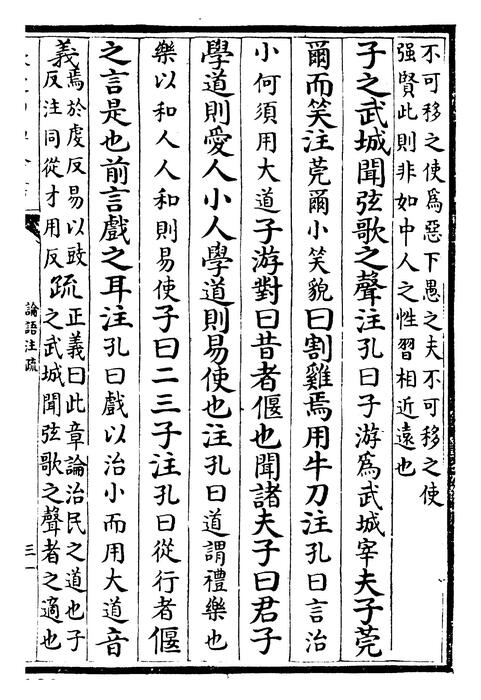 不可移之使為惡下愚之夫不可移之使
强賢此則非如中人之性習相近遠也
子之武城聞弦歌之聲注孔曰子游為武城宰夫子莞
爾而笑注莞爾小笑貌曰割雞焉用牛刀注孔曰言治
小何須用大道子游對曰昔者偃也聞諸夫子曰君子
學道則愛人小人學道則易使也注孔曰道謂禮樂也
樂以和人人和則易使子曰二三子注孔曰從行者偃
之言是也前言戲之耳注孔曰戲以治小而用大道音
義焉於虔反易以豉
反注同從才用反
疏正義曰此章論治民之道也子
之武城聞弦歌之聲者之適也
論語注疏